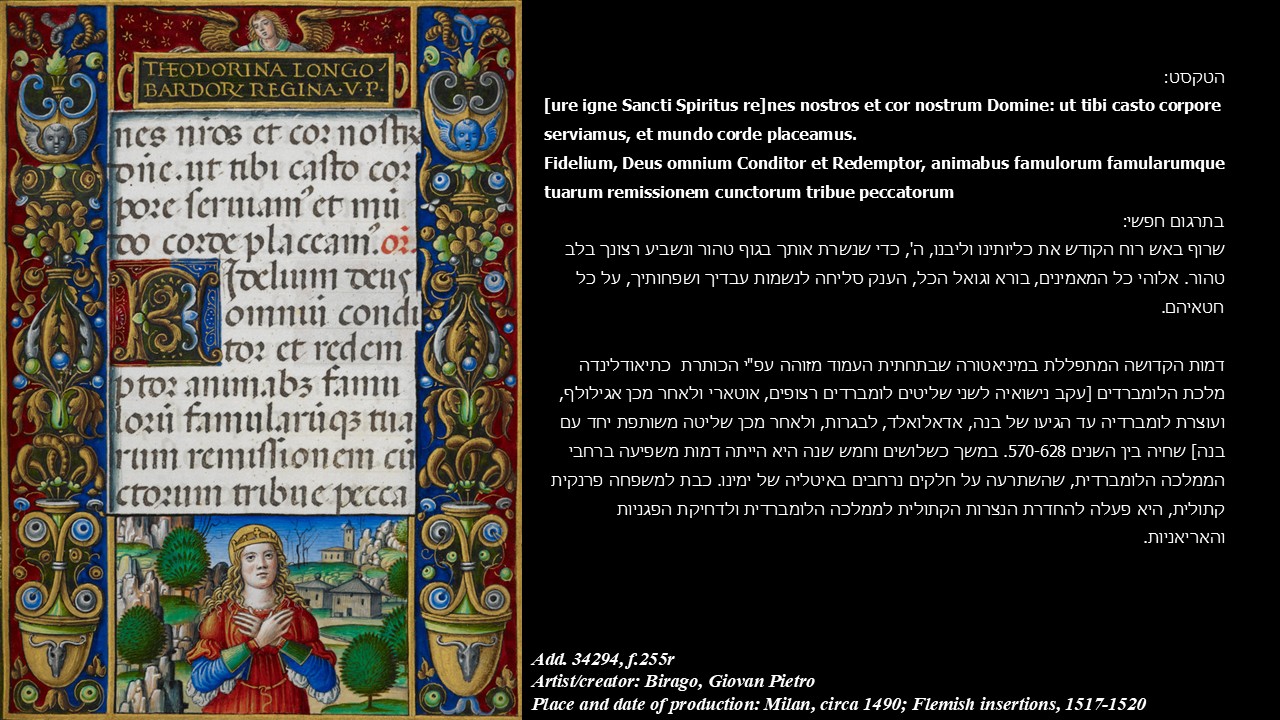 THEODORINA LONGO
BARDOR REGINA·V·P·
nes nr̃os et cor nostrꝝ
dñe.ut tibi casto cor
pore seruiam⁹ et mũ
do corde placeam⁹.or.
Fidelium deus
omniũ condi
tor et redem
ptor animabꝫ famu
lorũ famularũqꝫ tua
rum remissionem cũ
ctorum tribue pecca
הטקסט:
[ure igne Sancti Spiritus re]nes nostros et cor nostrum Domine: ut tibi casto corpore
serviamus, et mundo corde placeamus.
Fidelium, Deus omnium Conditor et Redemptor, animabus famulorum famularumque
tuarum remissionem cunctorum tribue peccatorum
בתרגום חפשי:
שרוף באש רוח הקודש את כליותינו וליבנו, ה', כדי שנשרת אותך בגוף טהור ונשביע רצונך בלב
טהור. אלוהי כל המאמינים, בורא וגואל הכל, הענק סליחה לנשמות עבדיך ושפחותיך, על כל
חטאיהם.
דמות הקדושה המתפללת במיניאטורה שבתחתית העמוד מזוהה עפ"י הכותרת כתיאודלינדה
מלכת הלומברדים [עקב נישואיה לשני שליטים לומברדים רצופים, אוטארי ולאחר מכן אגילולף,
ועוצרת לומברדיה עד הגיעו של בנה, אדאלואלד, לבגרות, ולאחר מכן שליטה משותפת יחד עם
בנה] שחיה בין השנים 570-628. במשך כשלושים וחמש שנה היא הייתה דמות משפיעה ברחבי
הממלכה הלומברדית, שהשתרעה על חלקים נרחבים באיטליה של ימינו. כבת למשפחה פרנקית
קתולית, היא פעלה להחדרת הנצרות הקתולית לממלכה הלומברדית ולדחיקת הפגניות
והאריאניות.
Add. 34294, f.255r
Artist/creator: Birago, Giovan Pietro
Place and date of production: Milan, circa 1490; Flemish insertions, 1517-1520